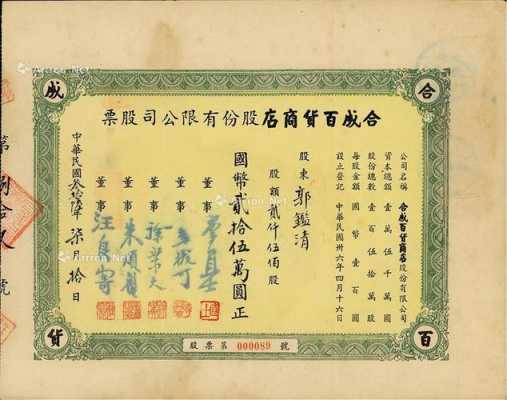 合成百貨商店股份有限公司股票
合
成
百
貨
公司名稱 合成百貨商店股份有限公司
資本總額 壹萬伍千萬圓
股份總數 壹百伍拾萬股
每股金額 國幣壹百圓
設立登記 中華民國卅六年四月十六日
股東 郭鑑清
股額貳仟伍佰股
國幣貳拾伍萬圓正
董事
董事
董事
董事 朱順麟
董事 汪良寄
中華民國叁拾陸年柒月拾日
股票第 000089 號
第 捌 號